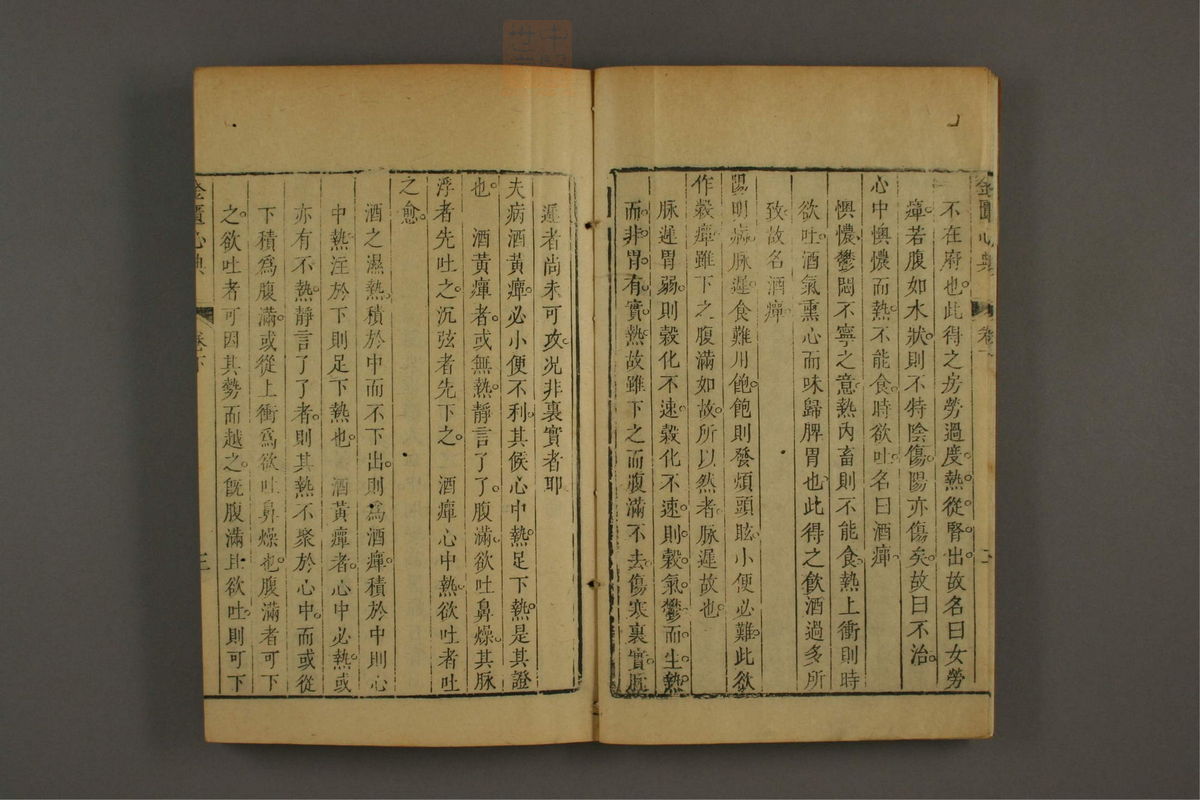 金匱心典 卷下 二
不在府也此得之房勞過度熱從腎出故名曰女勞
疸若腹如水狀則不特陰傷陽亦傷矣故曰不治
心中懊憹而熱不能食時欲吐名曰酒疸
懊憹鬱悶不寧之意熱內畜則不能食熱上衝則時
欲吐酒氣熏心而味歸脾胃也此得之飲酒過多所
致故名酒疸
陽明病脉遲食難用飽飽則發煩頭眩小便必難此欲
作穀疸雖下之腹滿如故所以然者脉遲故也
脉遲胃弱則穀化不速穀化不速則穀氣鬱而生熱
而非胃有實熱故雖下之而腹滿不去傷寒裏實脉
遲者尚未可攻况非裏實者耶
夫病酒黃疸必小便不利其候心中熱足下熱是其證
也 酒黃疸者或無熱靜言了了腹滿欲吐鼻燥其脉
浮者先吐之沉弦者先下之 酒疸心中熱欲吐者吐
之愈
酒之濕熱積於中而不下出則爲酒疸積於中則心
中熱注於下則足下熱也 酒黃疸者心中必熱或
亦有不熱靜言了了者則其熱不聚於心中而或從
下積爲腹滿或從上衝爲欲吐鼻燥也腹滿者可下
之欲吐者可因其勢而越之旣腹滿且欲吐則可下
金匱心典 卷下 三